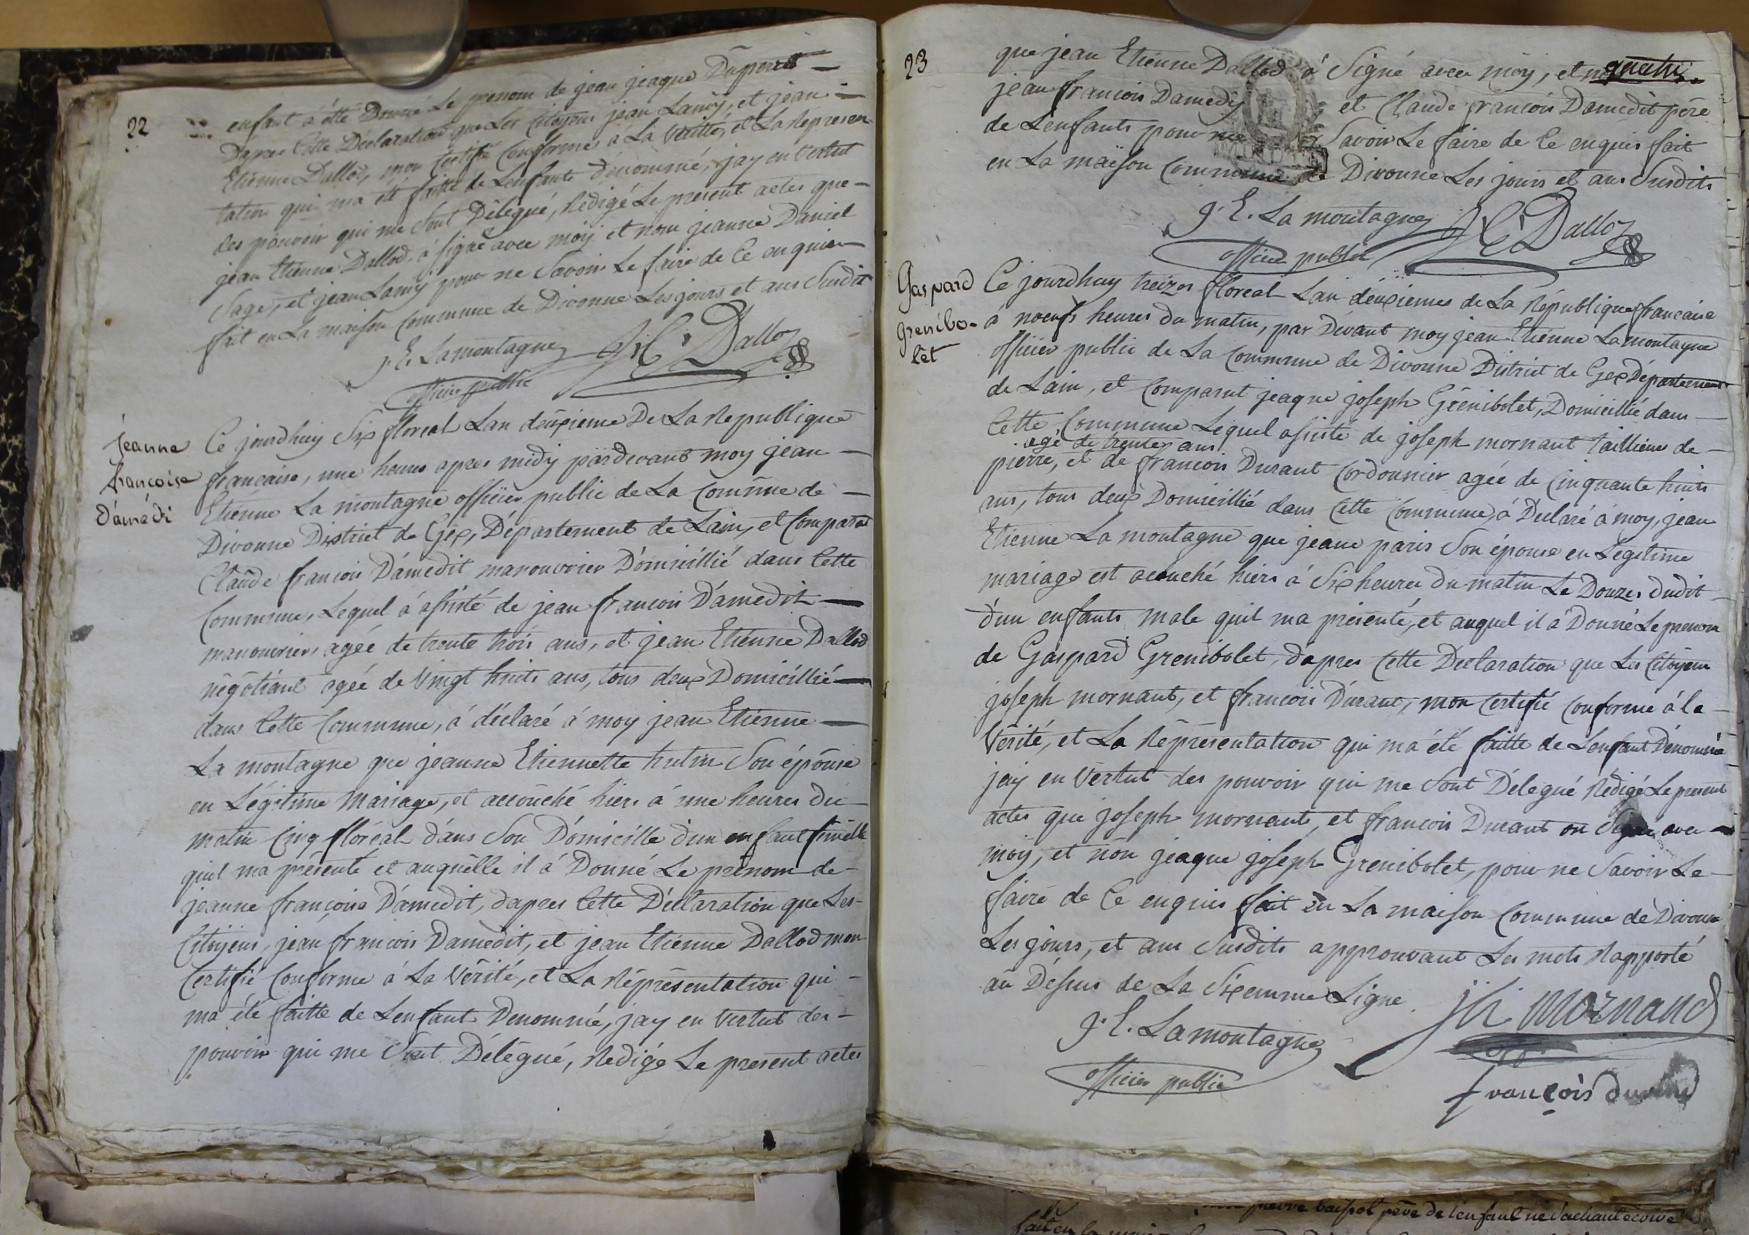 22
enfant à étte Donne Le prenom de jean jeaque Duprenes
Dapres Cette Déclaration que Les Citoyens jean Lamy, et jean
Etienne Dallod, mon Certifié Conforme à La Véritté, et La Represen
tation qui ma eté faitte de Lenfants Dénommé, jay en Vertut
des pouvoir qui me Sont Délégué, Rédigé Le présent actes que
jean Etienne Dallod à signé avec moy et nom jeanne Daniel
Sage, et jean Lamy pour ne Savoir Le faire de Ce enquier
fait en La maison Commune de Divonne Les jours et ans Susdit
J. E. Lamontagne J E Dalloz
officier public
jeanne
françoise
Damédi
Ce jourdhuy Six floreal Lan deuxieme De La Republique
francaise, une heures apres midy pardevant moy jean
Etienne La montagne officier public de La Commune de
Divonne District de Gex, Département de Lain, et Comparut
Claude francois Damédit manouvrier Domicillié dans Cette
Commune, Lequel à assisté de jean francois Damedit
manouvrier agée de trente trois ans, et jean Etienne Dallod
négotiant agée de Vingt huits ans, tous deux Domicillié
dans Cette Commune, à déclaré à moy jean Etienne
La montagne que jeanne Etiennette hutin Son épouse
en Légitime Mariage, et accouché hiers à une heures du
matin Cinq floréal dans Son Domicille d'un enfant fimelle
quil ma présenté et auquelle il à Donné Le prénom de
jeanne françoise Damédit, dapres Cette Déclaration que Les
Citoyens, jean francois Damédit, et jean Etienne Dallod mon
Certifié Conforme à La Vérité, et La Représentation qui
ma été faitte de Lenfant Denommé, jay en Vertut des
pouvoir qui me Sont Délégué, Rédigé Le present actes
23
que jean Etienne Dallod à Signé avec moy, et non
quatre
jean francois Damedy et Claude francois Damedit pere
de Lenfants pour ne Savoir Le faire de Ce enquis fait
en La maison Commune de Divonne Les jours et ans Susdits
J. E. La montagne J E Dalloz
officier public
Gaspard
Grenibo-
let
Ce jourdhuy treizes floreal Lan deuxiemes de La République francaise
à noeufs heures du matin, par Devant moy jean Etienne Lamontagne
officier public de La Commune de Divonne District de Gex Département
de Lain, et Comparut jeaque joseph Grenibolet, Domicillié dans
Cette Commune Lequel assisté de joseph mornant taillieur de
agé de trente ans
pierre, et de francois Durant Cordonnier agée de Cinquante huits
ans, tous deux Domicillié dans Cette Commune, à Declaré à moy jean
Etienne La montagne que jeane paris Son épouse en Légitime
mariage est acouché hiers à Six heures du matin Le Douzes dudit
d'un enfants male quil ma présenté, et auquel il à Donné Le prenom
de Gaspard Grenibolet, dapres Cette Declaration que Les Citoyens
joseph mornant, et francois Durant, mon Certifié Conforme à la
Vérité, et La Représentation qui ma été faitte de Lenfant Dénommé
jay en Vertut des pouvoir qui me Sont Délegué Rédigé Le present
actes que joseph mornant, et francois Durant on Signé avec
moy, et non jeaque joseph Grenibolet, pour ne Savoir Le
faire de Ce enquis fait en La maison Commune de Divonne
Les jours, et ans Susdits approuvant Les mots Rapporté
au Désus de La Sixemme Ligne
J. E. Lamontagne
officier public
Jh mornand
françois durand
pierre père de lenfant ne Sachant ecrire